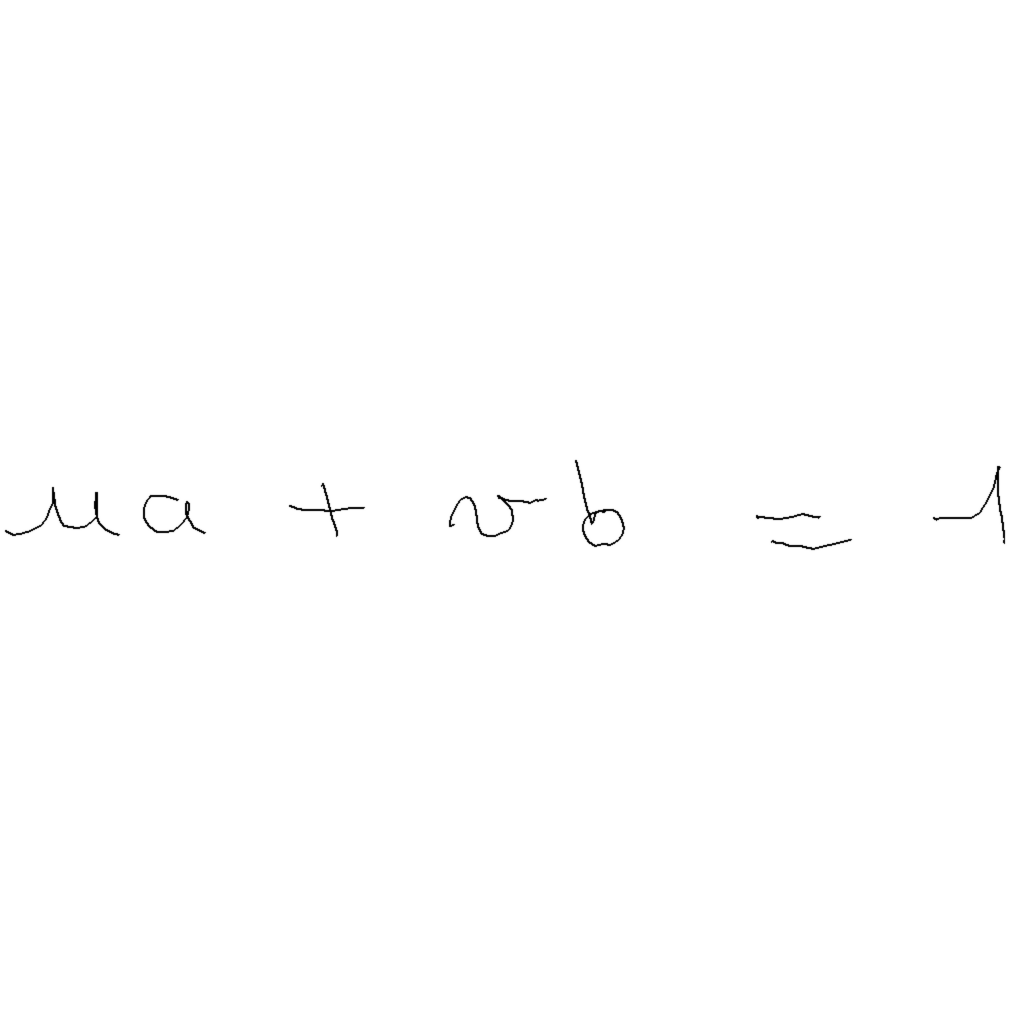 ua + vb = 1